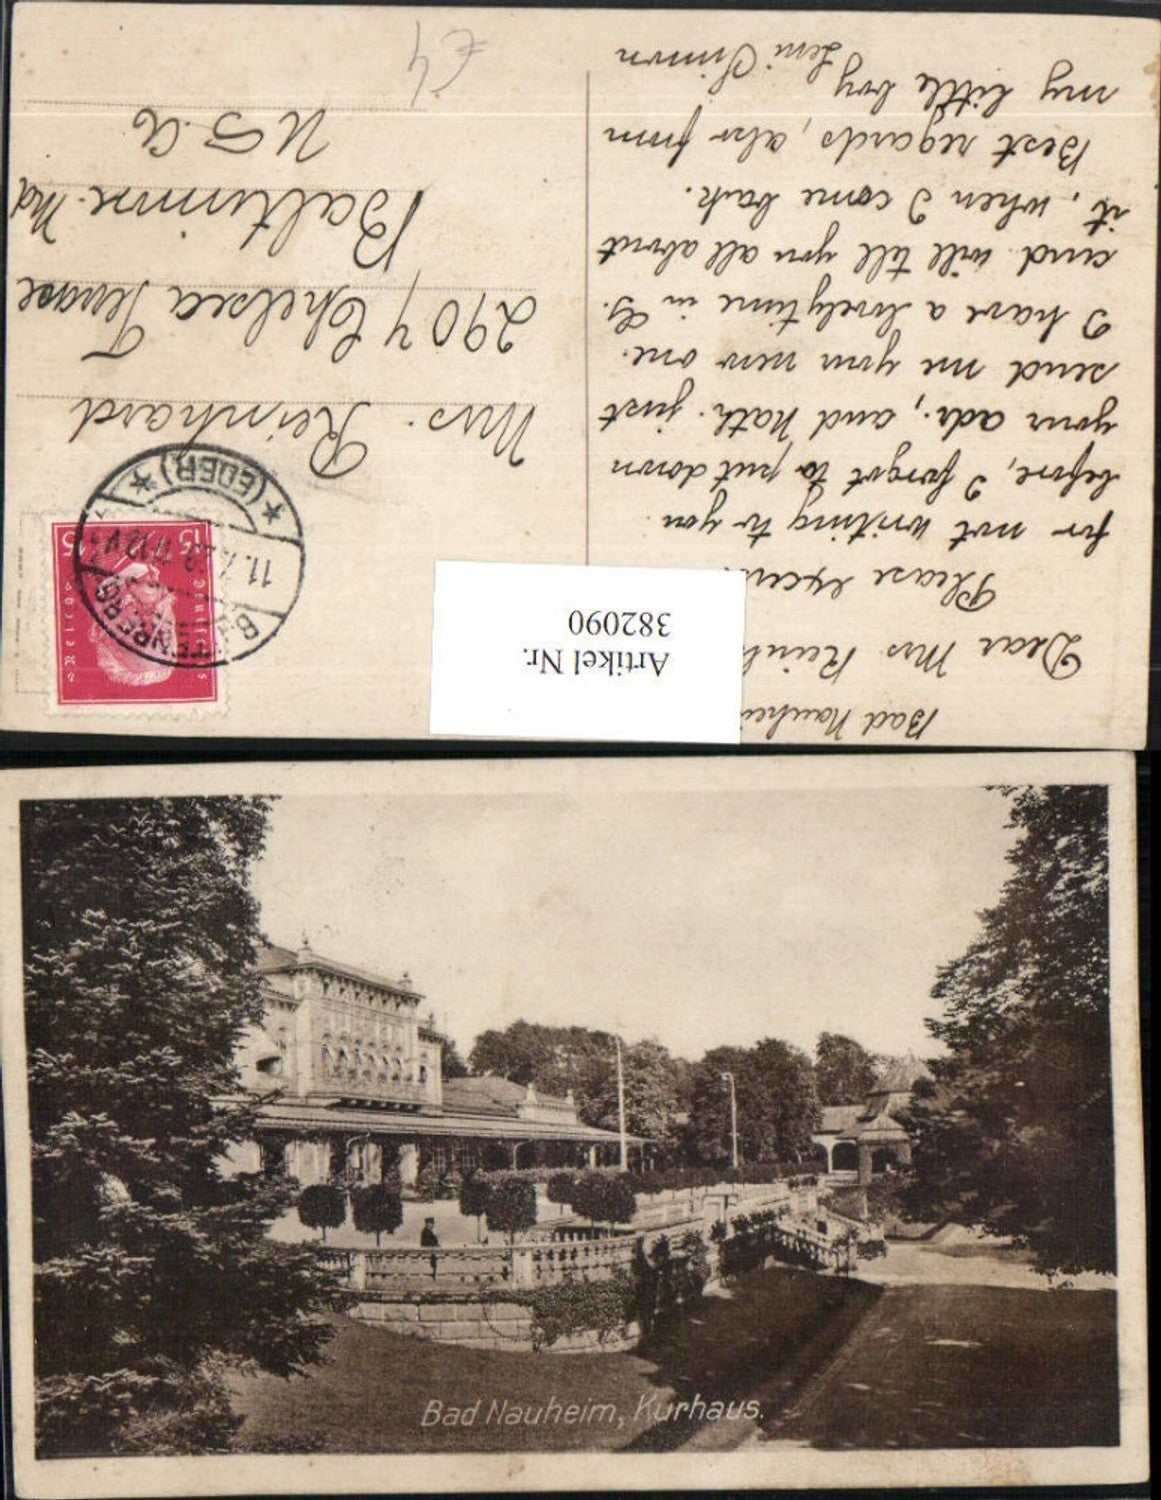 Bad Nauhei
Dear Mrs. Reinh
Please excus
for not writing to you
before, I forgot to put down
your adr., and Kath. just
send me your new one.
I have a lovely time in G.
and will tell you all about
it, when I come back.
Best regards, also from
my little boy
Leni Simon
Mrs. Reinhard
2907 Chelsea Terrace
Baltimore. Md
U.S.A
£4
Artikel Nr.
382090
Deutsches Reich
15 15
(EDER)
11.
Bad Nauheim, Kurhaus.